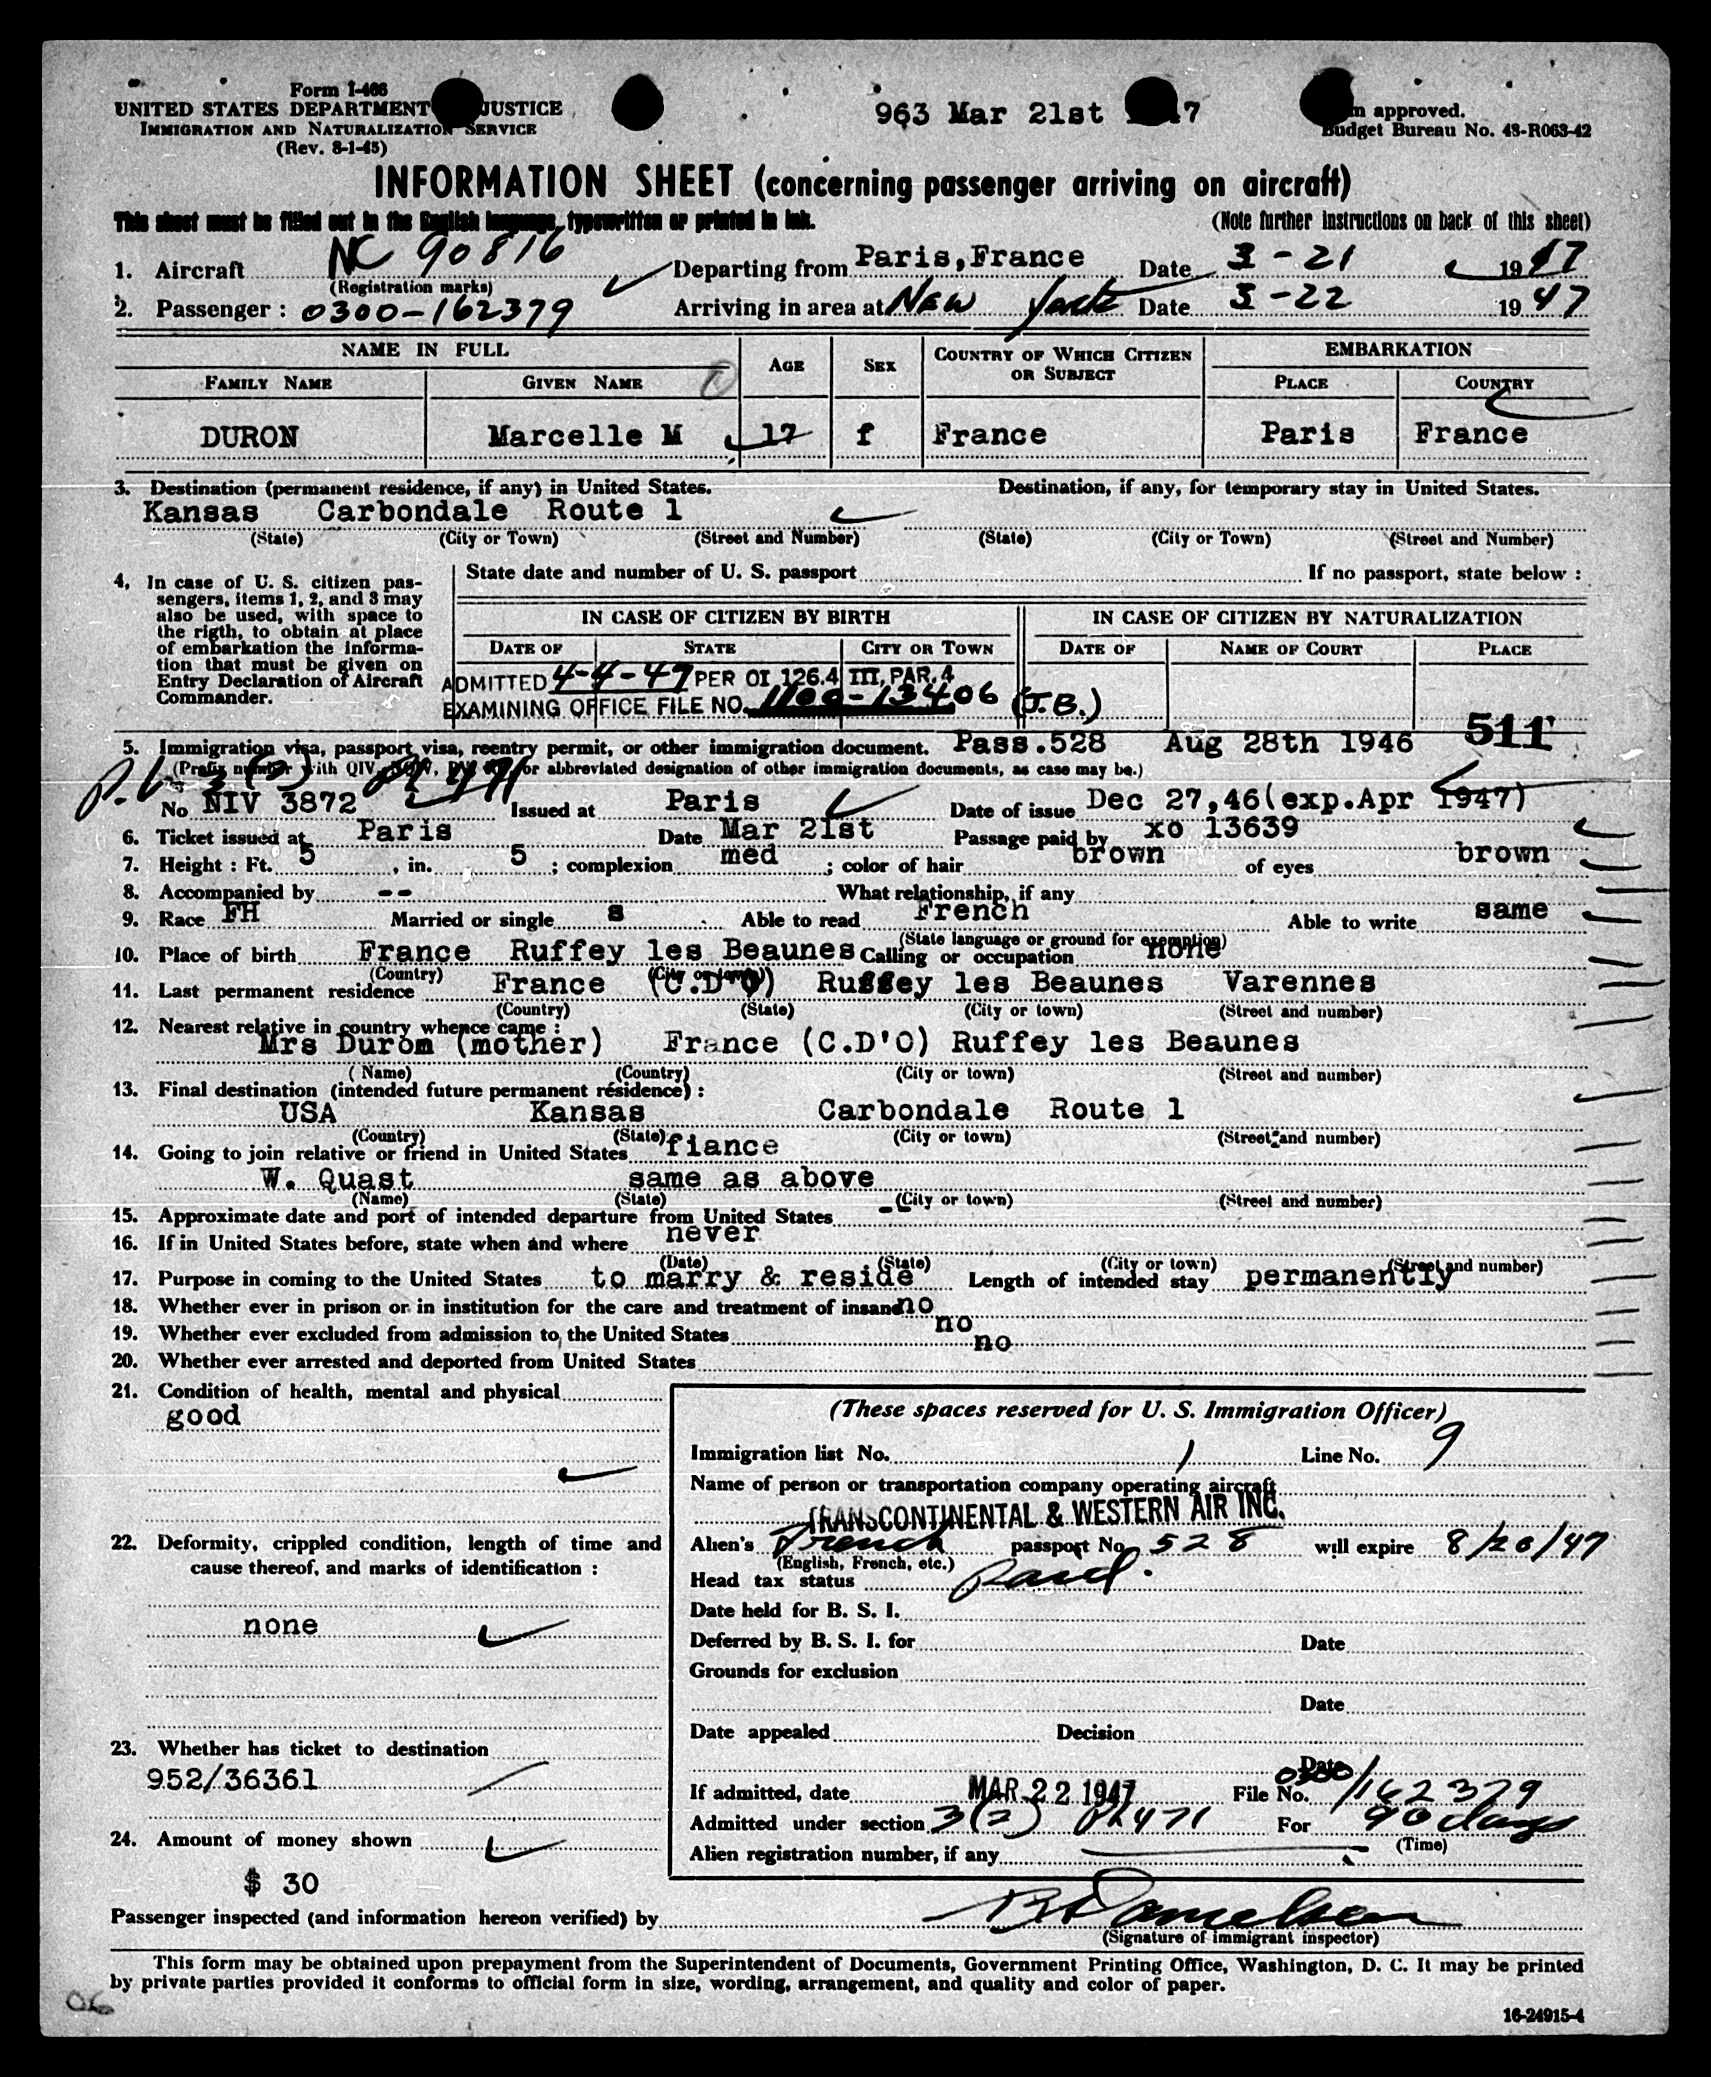 Form I-466
UNITED STATES DEPARTMENT JUSTICE
IMMIGRATION AND NATURALIZATION SERVICE
(Rev. 8-1-45)
963 Mar 21st 7
approved.
Budget Bureau No. 43-R063-42
INFORMATION SHEET (concerning passenger arriving on aircraft)
This sheet must be filled out in the English language, typewritten or printed in ink. (Note further instructions on back of this sheet)
1. Aircraft NC 90816 Departing from Paris,France Date 3-21 1947
(Registration marks)
2. Passenger : 0300-162379 Arriving in area at New York Date 3-22 1947
NAME IN FULL AGE SEX COUNTRY OF WHICH CITIZEN OR SUBJECT EMBARKATION
FAMILY NAME GIVEN NAME PLACE COUNTRY
DURON Marcelle M 17 f France Paris France
3. Destination (permanent residence, if any) in United States. Destination, if any, for temporary stay in United States.
Kansas Carbondale Route 1
(State) (City or Town) (Street and Number) (State) (City or Town) (Street and Number)
4. In case of U. S. citizen pas-
sengers, items 1, 2, and 3 may
also be used, with space to
the rigth, to obtain at place
of embarkation the informa-
tion that must be given on
Entry Declaration of Aircraft
Commander.
State date and number of U. S. passport If no passport, state below :
IN CASE OF CITIZEN BY BIRTH IN CASE OF CITIZEN BY NATURALIZATION
DATE OF STATE CITY OR TOWN DATE OF NAME OF COURT PLACE
ADMITTED 4-4-47 PER OI 126.4 III, PAR. 4
EXAMINING OFFICE FILE NO. 1100-13406 (J.B.)
511
5. Immigration visa, passport visa, reentry permit, or other immigration document. Pass.528 Aug 28th 1946
(Prefix number with QIV, or abbreviated designation of other immigration documents, as case may be.)
No NIV 3872 Issued at Paris Date of issue Dec 27,46(exp.Apr 1947)
6. Ticket issued at Paris Date Mar 21st Passage paid by xo 13639
7. Height : Ft. 5 , in. 5 ; complexion med ; color of hair brown of eyes brown
8. Accompanied by -- What relationship, if any
9. Race FH Married or single s Able to read French Able to write same
(State language or ground for exemption)
10. Place of birth France Ruffey les Beaunes Calling or occupation none
(Country) (City or town)
11. Last permanent residence France (C.D'O) Ruffey les Beaunes Varennes
(Country) (State) (City or town) (Street and number)
12. Nearest relative in country whence came :
Mrs Duron (mother) France (C.D'O) Ruffey les Beaunes
(Name) (Country) (City or town) (Street and number)
13. Final destination (intended future permanent résidence) :
USA Kansas Carbondale Route 1
(Country) (State) (City or town) (Street and number)
14. Going to join relative or friend in United States fiance
W. Quast same as above
(Name) (State) (City or town) (Street and number)
15. Approximate date and port of intended departure from United States --
16. If in United States before, state when and where never
(Date) (State) (City or town) (Street and number)
17. Purpose in coming to the United States to marry & reside Length of intended stay permanently
18. Whether ever in prison or in institution for the care and treatment of insane no
19. Whether ever excluded from admission to the United States no
20. Whether ever arrested and deported from United States no
21. Condition of health, mental and physical
good
22. Deformity, crippled condition, length of time and
cause thereof, and marks of identification :
none
23. Whether has ticket to destination
952/36361
24. Amount of money shown
$ 30
(These spaces reserved for U. S. Immigration Officer)
Immigration list No. 1 Line No. 9
Name of person or transportation company operating aircraft
TRANSCONTINENTAL & WESTERN AIR INC.
Alien's French passport No. 528 will expire 8/20/47
(English, French, etc.)
Head tax status Paid.
Date held for B. S. I.
Deferred by B. S. I. for Date
Grounds for exclusion
Date
Date appealed Decision
Date
If admitted, date MAR 22 1947 File No. 0300/162379
Admitted under section 3(2) PL471 For 90 days
(Time)
Alien registration number, if any
Passenger inspected (and information hereon verified) by
(Signature of immigrant inspector)
This form may be obtained upon prepayment from the Superintendent of Documents, Government Printing Office, Washington, D. C. It may be printed
by private parties provided it conforms to official form in size, wording, arrangement, and quality and color of paper.
16-24915-4